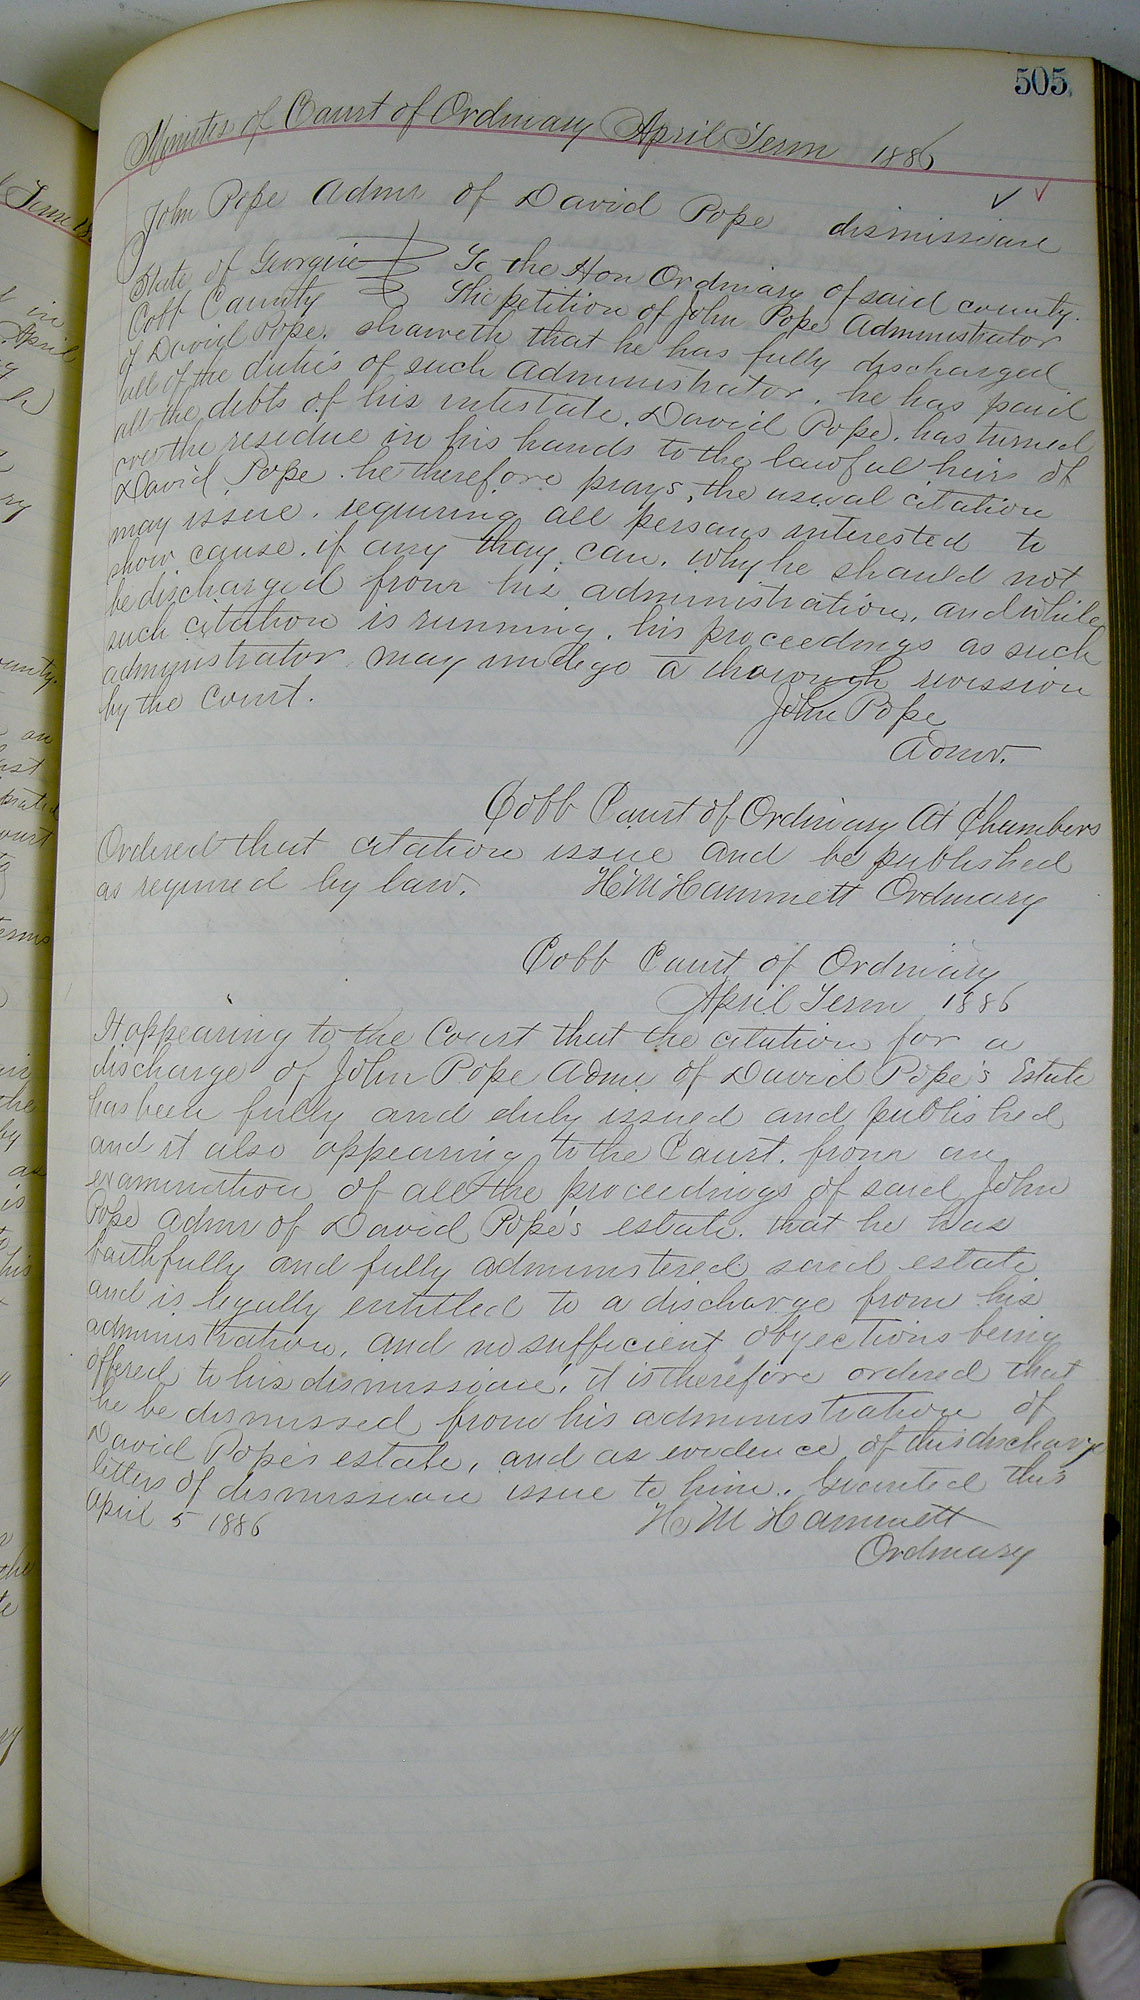 505
Minutes of Court of Ordinary April Term 1886
John Pope Admr of David Pope dismission
State of Georgia } To the Hon Ordinary of said county.
Cobb County } The petition of John Pope Administrator
of David Pope. sheweth that he has fully discharged
all of the duties of such Administrator. he has paid
all the debts of his intestate. David Pope. has turned
over the residue in his hands to the lawful heirs of
David Pope. he therefore prays, the usual citation
may issue. requiring all persons interested to
show cause. if any they can. why he should not
be discharged from his administration, and while
such citation is running. his proceedings as such
administrator may undego a thorough revission
by the Court.
John Pope
Admr.
Cobb Court of Ordinary At Chambers
Ordered that citation issue and be published
as required by law. H M Hammett Ordinary
Cobb Court of Ordinary
April Term 1886
It appearing to the Court that the citation for a
discharge of John Pope Admr of David Pope's Estate
has been fully and duly issued and published
and it also appearing to the Court. from an
examination of all the proceedings of said John
Pope Admr of David Pope's estate. that he has
faithfully and fully administered said estate
and is legally entitled to a discharge from his
administration, and no sufficient objections being
offered to his dismission. it is therefore ordered that
he be dismissed from his administration of
David Pope's estate, and as evidence of this discharge
letters of dismission issue to him. Granted this
April 5 1886 H M Hammett
Ordinary